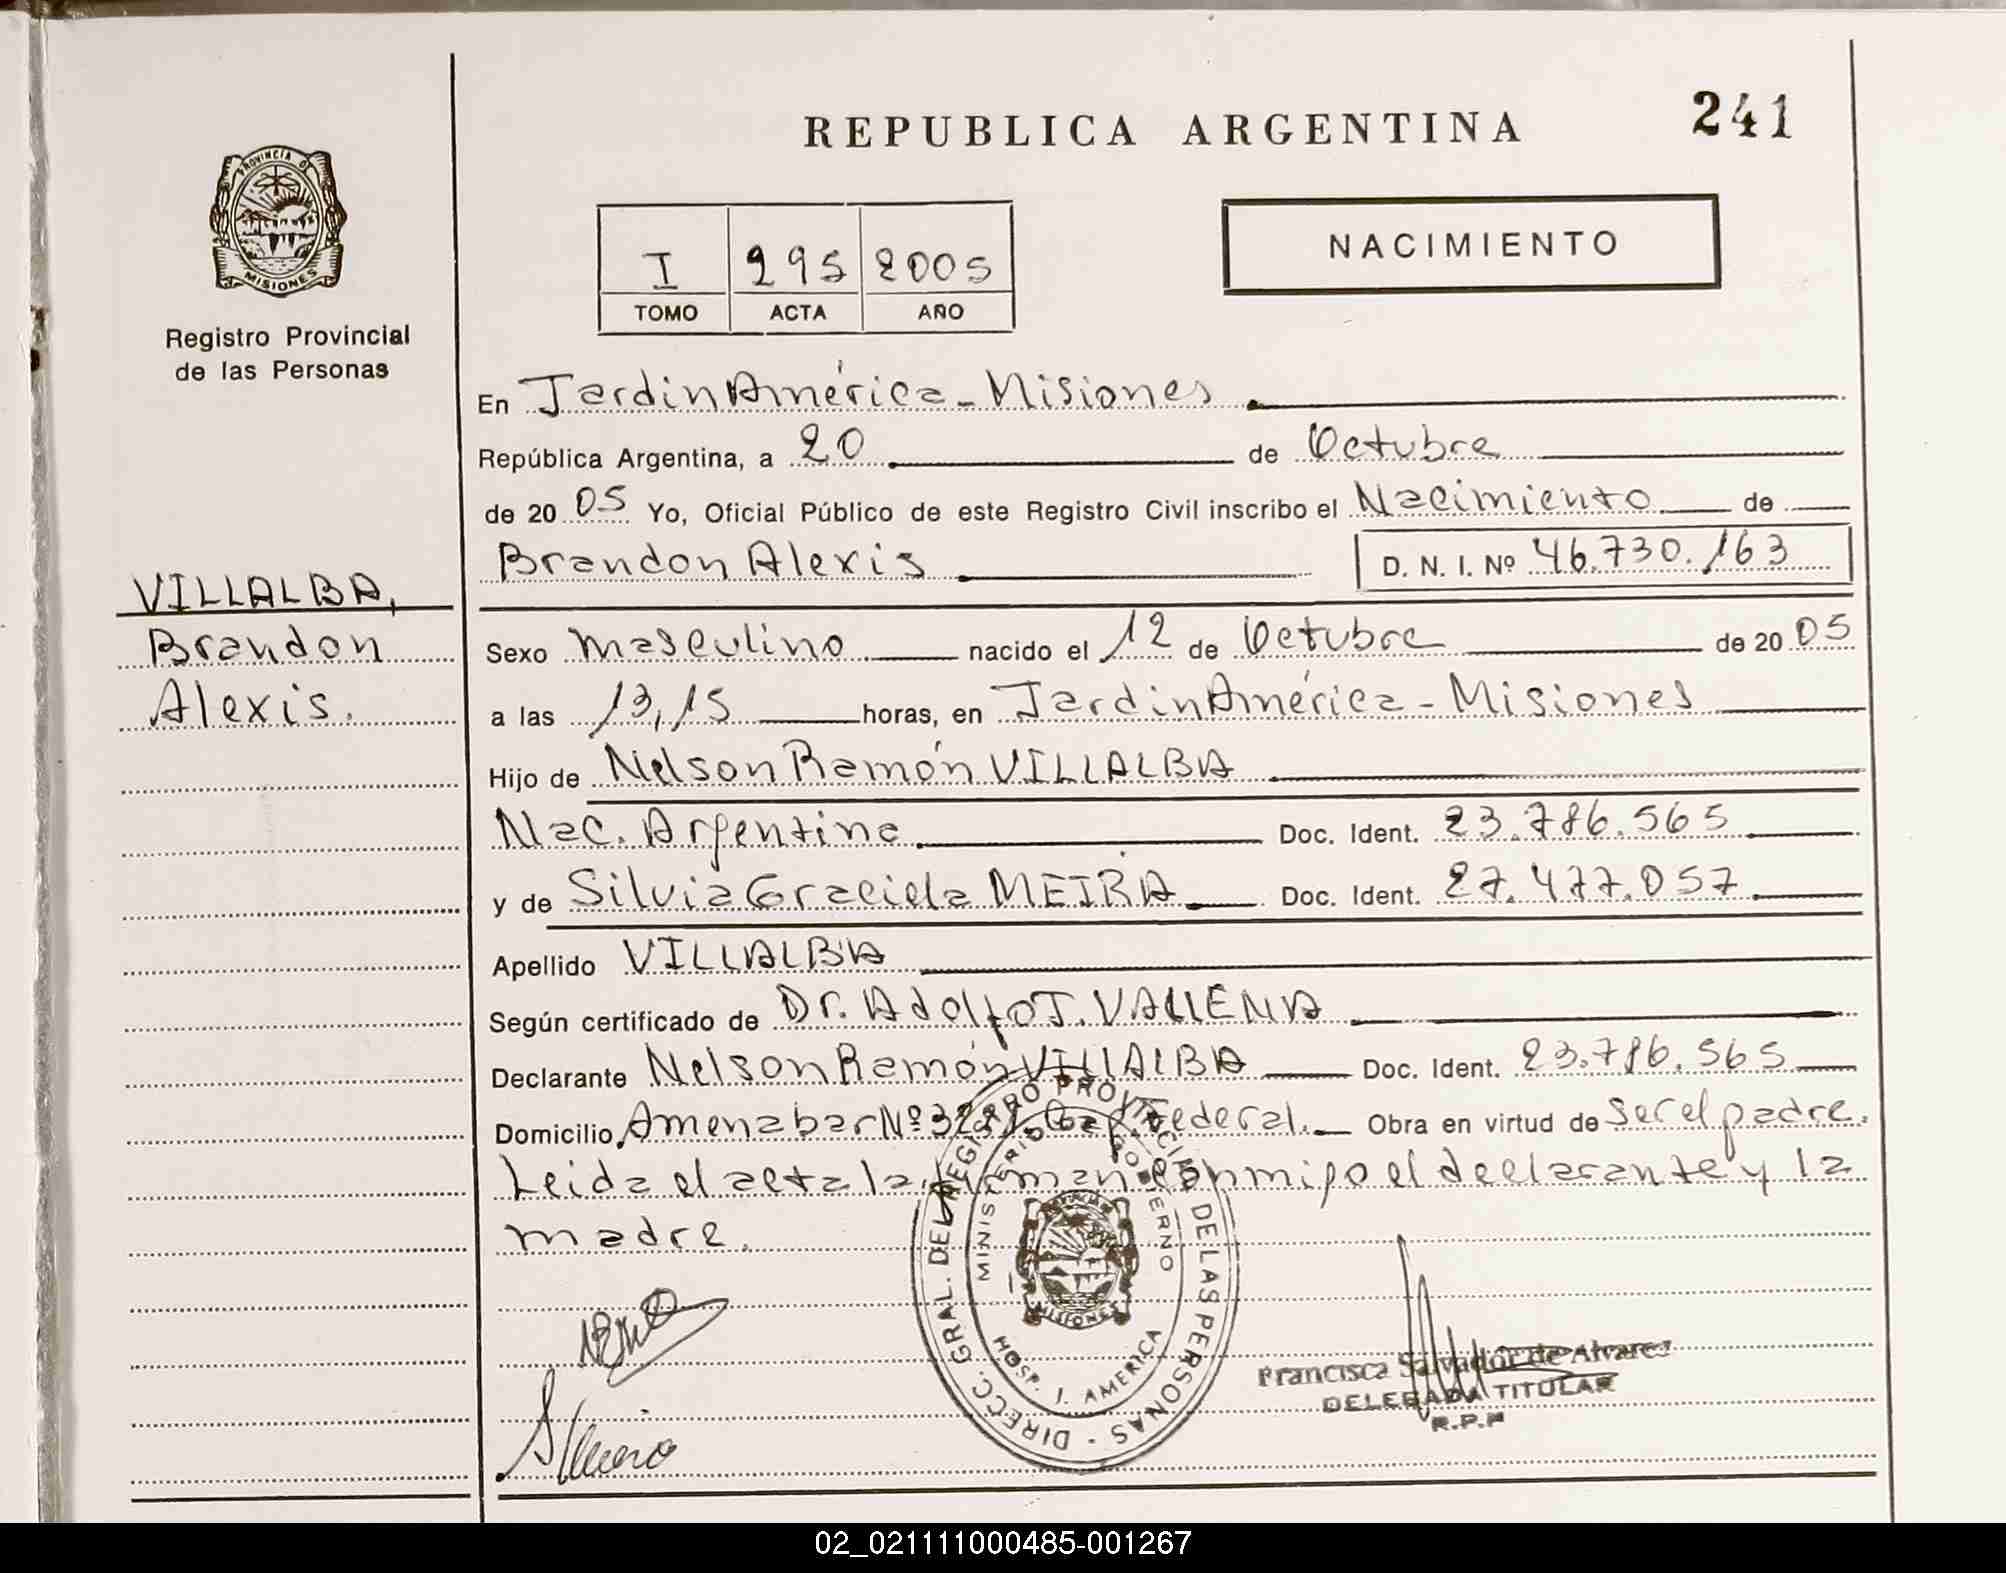 REPUBLICA ARGENTINA
241
PROVINCIA DE
MISIONES
Registro Provincial
de las Personas
I 295 2005
TOMO ACTA AÑO
NACIMIENTO
En Jardin América - Misiones
República Argentina, a 20 de Octubre
de 2005 Yo, Oficial Público de este Registro Civil inscribo el Nacimiento de
Brandon Alexis D. N. I. Nº 46.730.163
VILLALBA,
Brandon
Alexis.
Sexo Masculino nacido el 12 de Octubre de 2005
a las 13,15 horas, en Jardin América - Misiones
Hijo de Nelson Ramón VILLALBA
Nac. Argentina Doc. Ident. 23.786.565
y de Silvia Graciela MEIRA Doc. Ident. 27.477.057
Apellido VILLALBA
Según certificado de Dr. Adolfo J. VALLENA
Declarante Nelson Ramón VILLALBA Doc. Ident. 23.786.565
Domicilio Amenabar Nº Cap. Federal. Obra en virtud de ser el padre.
Leida el acta la firman conmigo el declarante y la
madre.
DIRECC. GRAL. DEL REGISTRO PROVINCIAL DE LAS PERSONAS -
MINISTERIO DE GOBIERNO
MISIONES
HOSP. J. AMERICA
Francisca Salvador de Alvarez
DELEGADA TITULAR
R.P.P
02_021111000485-001267